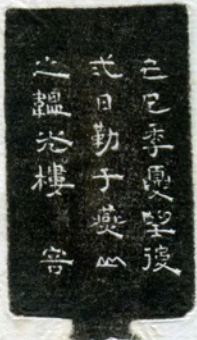 己巳季夏望後
弍日勒于燕山
之韞光樓 容